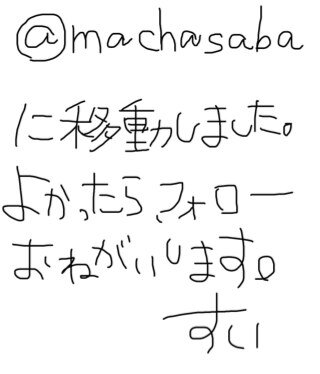 @machasaba
に移動しました。
よかったら、フォロー
おねがいします。
すい